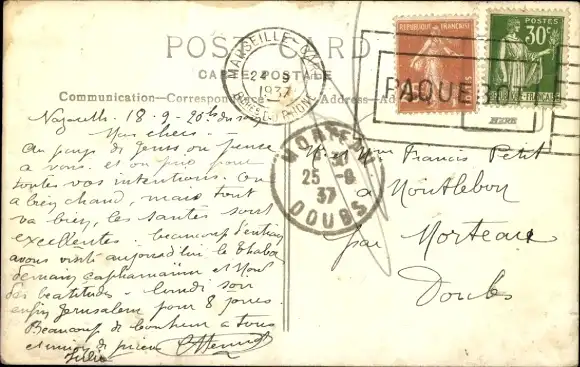 POST CARD
CARTE POSTALE
Communication—Correspondence
Address—Ad
MARSEILLE-GARE
24
1937
BCHES-DU-RHONE
RÉPUBLIQUE FRANÇAISE
POSTES
30c
PAQUEBOT
HERE
MORTEAU
25 -8
37
DOUBS
Nazareth - 18 - 8 - 20h du soir
Mes chers -
Au pays de Jésus on pense
à vous. et on prie pour
toutes vos intentions. On
a bien chaud, mais tout
va bien, les santés sont
excellentes. beaucoup d'entrain
avons visité aujourd'hui le Thabor
demain Capharnaüm et Mont
des béatitudes - lundi soir
enfin Jérusalem pour 8 jours.
Beaucoup de bonheur à tous
et union de prières
Julie
M et Mme Francis Petit
à Montlebon
par Morteau
Doubs